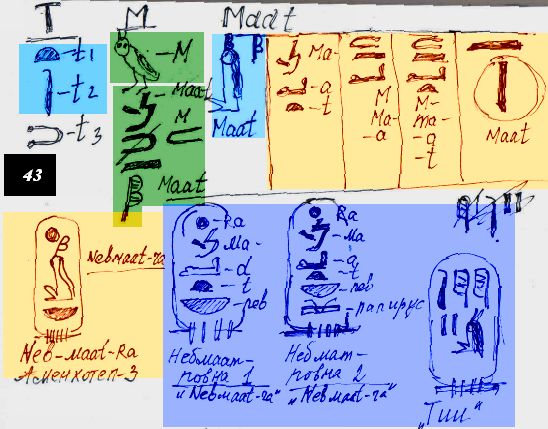 T M Maat
-t1
-t2
-t3
-M
Maat
M
Maat
β
Maat
Ma-
-a
-t
M
Ma-
-a
M-
ma-
-a
-t
Maat
43
β
Nebmaat-ra
Neb-maat-Ra
Аменхотеп-3
-Ra
Ma-
-a
-t
-neb
Небмаат-
ровна 1
"Nebmaat-ra"
Ra
-Ma
-a
-t
-neb
-папирус
Небмат-
ровна 2
"Nebmaat-ra"
"Тии"